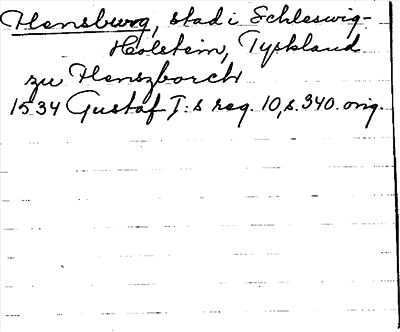 Flensburg, stad i Schleswig-
Holstein, Tyskland
zu Flenszborch
1534 Gustaf I:s reg. 10, s. 340. orig.